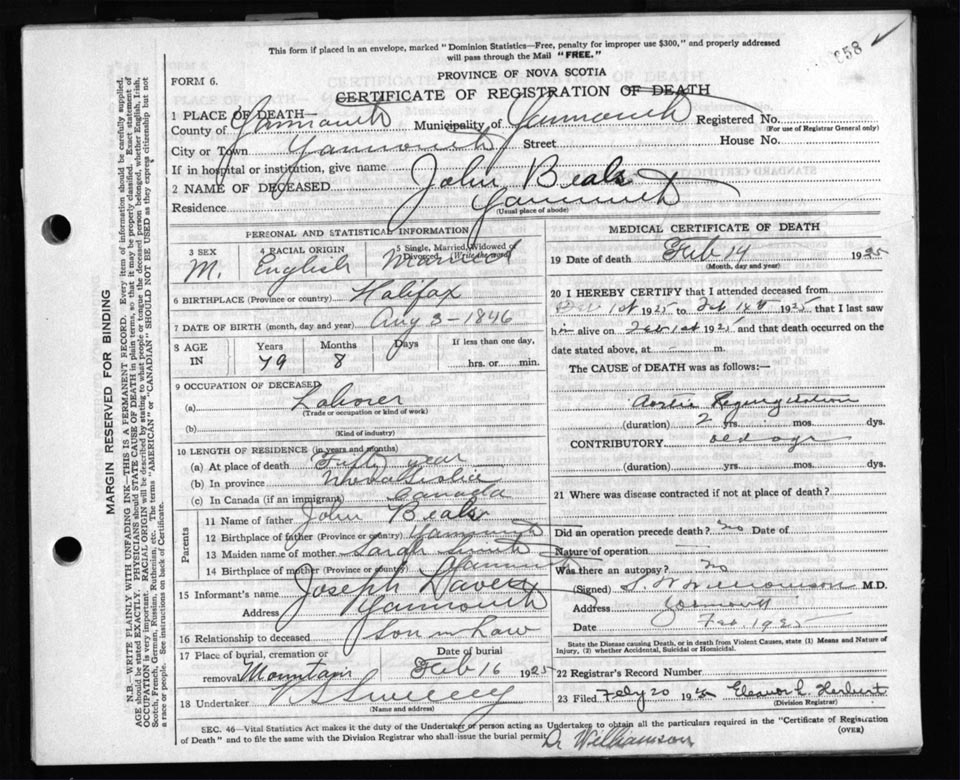 This form if placed in an envelope, marked "Dominion Statistics—Free, penalty for improper use $300," and properly addressed
will pass through the Mail "FREE."
258 ✓
PROVINCE OF NOVA SCOTIA
FORM 6.
CERTIFICATE OF REGISTRATION OF DEATH
1 PLACE OF DEATH—
County of Yarmouth Municipality of Yarmouth Registered No.
(For use of Registrar General only)
City or Town Yarmouth Street House No.
If in hospital or institution, give name
2 NAME OF DECEASED John Beals
Residence Yarmouth
(Usual place of abode)
PERSONAL AND STATISTICAL INFORMATION
3 SEX 4 RACIAL ORIGIN 5 Single, Married, Widowed or
Divorced (Write the word)
M. English Married
6 BIRTHPLACE (Province or country) Halifax
7 DATE OF BIRTH (month, day and year) Aug 3-1846
8 AGE IN Years Months Days If less than one day,
79 8 hrs. or min.
9 OCCUPATION OF DECEASED
(a) Laborer
(Trade or occupation or kind of work)
(b)
(Kind of industry)
10 LENGTH OF RESIDENCE (in years and months)
(a) At place of death Fifty year
(b) In province Nova Scotia
(c) In Canada (if an immigrant) Canada
Parents
11 Name of father John Beals
12 Birthplace of father (Province or country) Yarmouth
13 Maiden name of mother Sarah Smith
14 Birthplace of mother (Province or country) Yarmouth
15 Informant's name Joseph
Address Yarmouth
16 Relationship to deceased Son in Law
17 Place of burial, cremation or Date of burial
removal Mountain Feb 16 1925
18 Undertaker V S Sweeny
(Name and address)
MEDICAL CERTIFICATE OF DEATH
19 Date of death Feb 14 1925
(Month, day and year)
20 I HEREBY CERTIFY that I attended deceased from
1st 1925 to Feb 14th 1925 that I last saw
him alive on Feb 1st 1925 and that death occurred on the
date stated above, at m.
The CAUSE of DEATH was as follows:—
Aortic Regurgitation
(duration) 2 yrs. mos. dys.
CONTRIBUTORY old age
(duration) yrs. mos. dys.
21 Where was disease contracted if not at place of death?
Did an operation precede death? no Date of
Nature of operation
Was there an autopsy? no
(Signed) S. W. Williamson M.D.
Address Yarmouth
Date Feb. 1925
State the Disease causing Death, or in death from Violent Causes, state (1) Means and Nature of
Injury, (2) whether Accidental, Suicidal or Homicidal.
22 Registrar's Record Number
23 Filed Feby 20 1925 Eleanor L. Herbert
(Division Registrar)
SEC. 46—Vital Statistics Act makes it the duty of the Undertaker or person acting as Undertaker to obtain all the particulars required in the "Certificate of Registration
of Death" and to file the same with the Division Registrar who shall issue the burial permit.
(OVER)
Dr Williamson
MARGIN RESERVED FOR BINDING
N.B.—WRITE PLAINLY WITH UNFADING INK—THIS IS A PERMANENT RECORD. Every item of information should be carefully supplied.
AGE should be stated EXACTLY. PHYSICIANS should STATE CAUSE OF DEATH in plain terms, so that it may be properly classified. Exact statement of
OCCUPATION is very important. RACIAL ORIGIN will be described by stating to what people or tongue the deceased person belonged, whether English, Irish,
Scotch, French, German, Russian, Ruthenian, etc. The terms "AMERICAN" or "CANADIAN" SHOULD NOT BE USED as they express citizenship but not
a race or people. See instructions on back of Certificate.